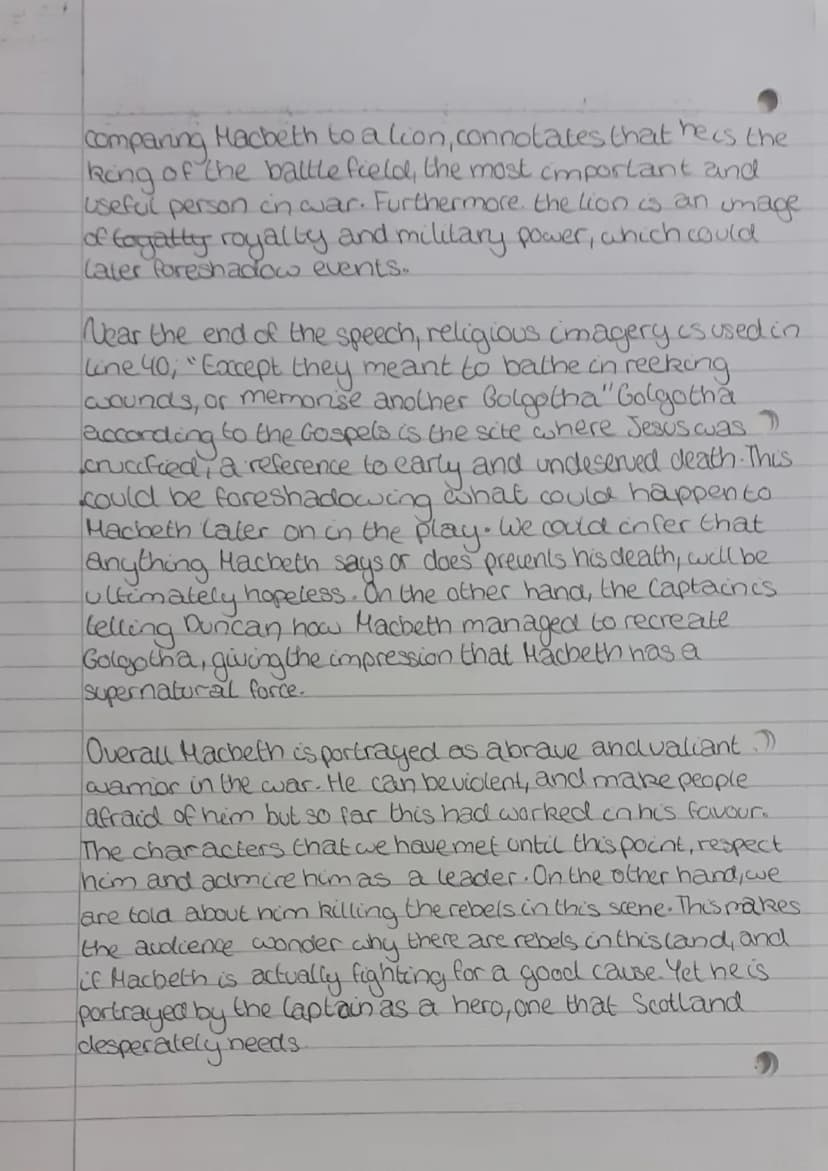 comparing Macbeth to a lion, connotates that he is the
king of the battle field, the most important and
useful person in war. Furthermore. the lion is an image
of royalty and military power, which could
later foreshadow events.
Near the end of the speech, religious imagery is used in
line 40, "Except they meant to bathe in reeking
wounds, or memorise another Golgotha" Golgotha
according to the Gospels is the site where Jesus was
crucified, a reference to early and undeserved death. This
could be foreshadowing what could happen to
Macbeth later on in the play. We could infer that
anything Macbeth says or does prevents his death, will be
ultimately hopeless. On the other hand, the Captain is
telling Duncan how Macbeth managed to recreate
Golgotha, giving the impression that Macbeth has a
supernatural force.
Overall Macbeth is portrayed as a brave and valiant
warrior in the war. He can be violent, and make people
afraid of him but so far this had worked in his favour.
The characters that we have met until this point, respect
him and admire him as a leader. On the other hand, we
are told about him killing the rebels in this scene. This makes
the audience wonder why there are rebels in this land, and
if Macbeth is actually fighting for a good cause. Yet he is
portrayed by the Captain as a hero, one that Scotland
desperately needs